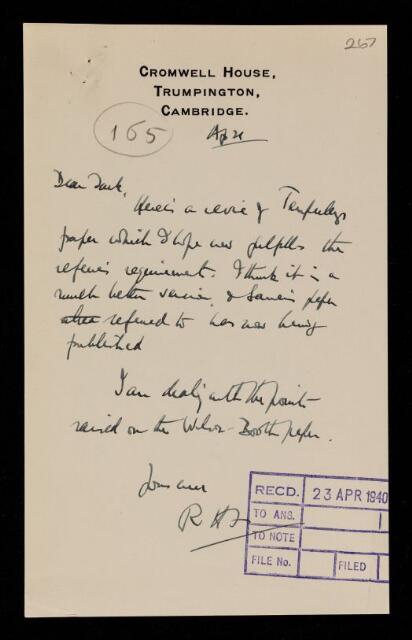 267
CROMWELL HOUSE,
TRUMPINGTON,
CAMBRIDGE.
165
Ap 21
Dear
Here is a of Temperley's
paper which I hope now fulfils the
referee's requirement. I think it is a
much better version, & paper
referred to has now being
published
I am dealing with the points
raised on the Booth paper.
Yours ever
RECD. 23 APR 1940
TO ANS.
TO NOTE
FILE No. FILED